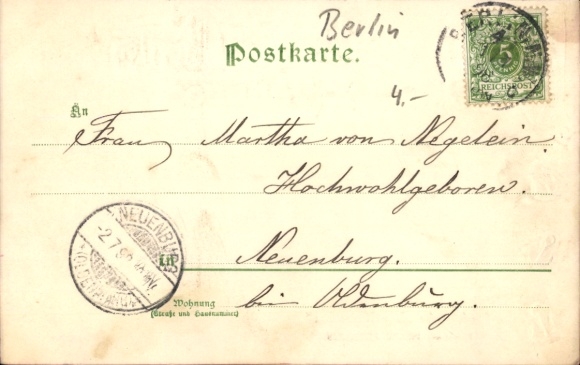 Berlin
Postkarte.
4.-
5
REICHSPOST
An
Frau Martha von Negelein.
Hochwohlgeboren.
NEUENBURG
-2.7.
in
Neuenburg.
bei Oldenburg.
Wohnung
(Straße und Hausnummer)